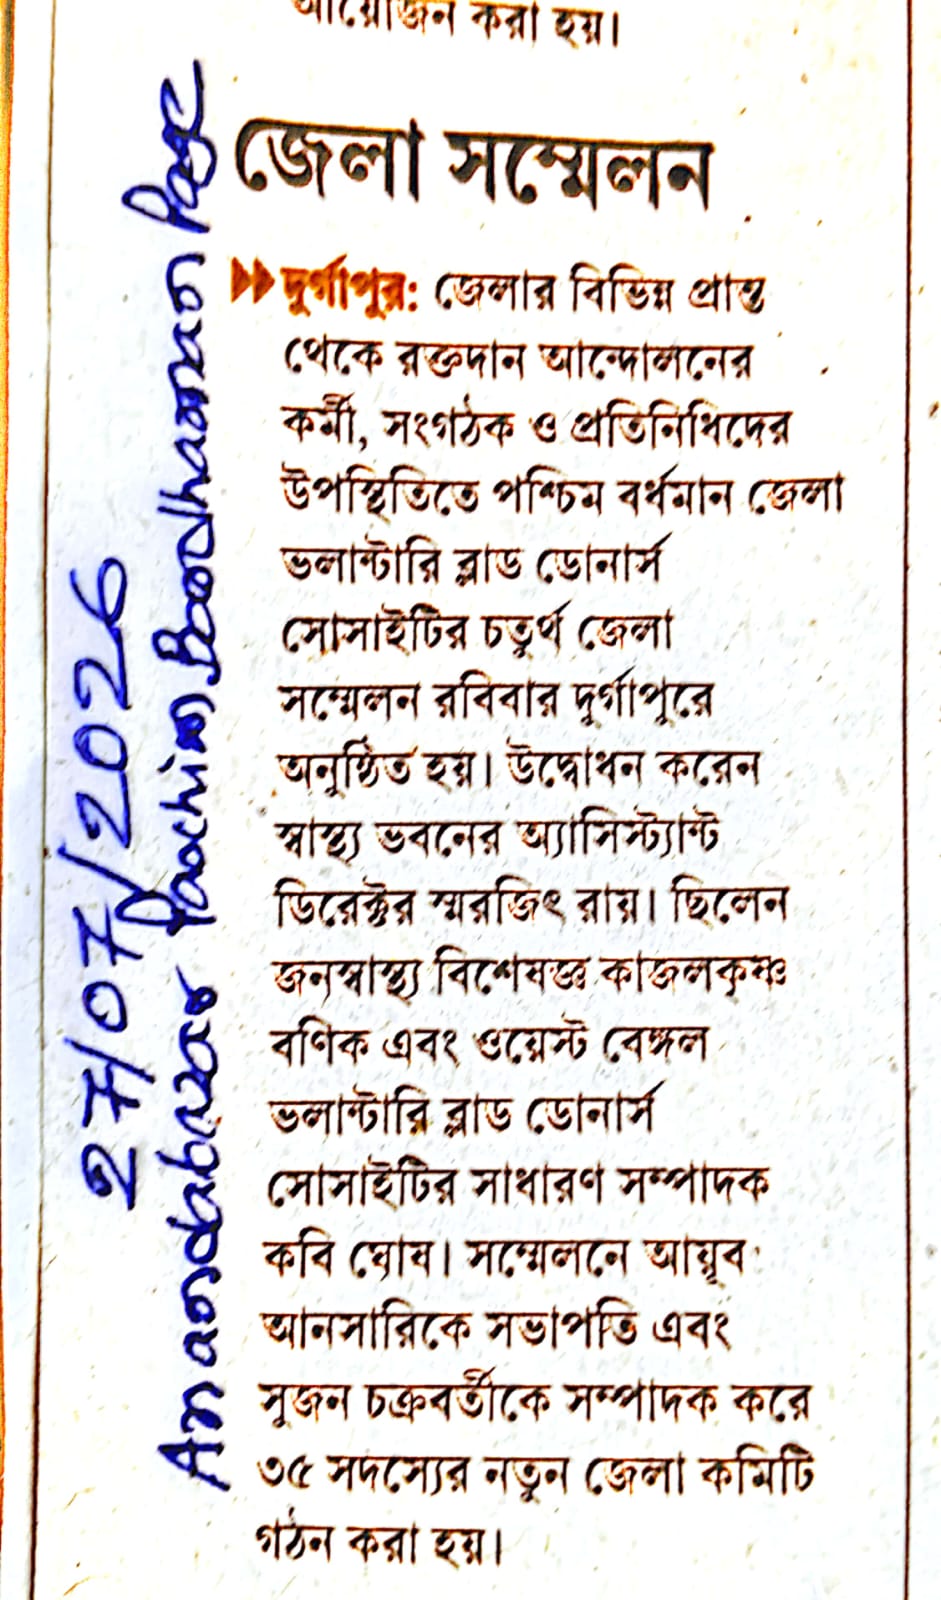 আয়োজন করা হয়।
জেলা সম্মেলন
দুর্গাপুর: জেলার বিভিন্ন প্রান্ত
থেকে রক্তদান আন্দোলনের
কর্মী, সংগঠক ও প্রতিনিধিদের
উপস্থিতিতে পশ্চিম বর্ধমান জেলা
ভলান্টারি ব্লাড ডোনার্স
সোসাইটির চতুর্থ জেলা
সম্মেলন রবিবার দুর্গাপুরে
অনুষ্ঠিত হয়। উদ্বোধন করেন
স্বাস্থ্য ভবনের অ্যাসিস্ট্যান্ট
ডিরেক্টর স্মরজিৎ রায়। ছিলেন
জনস্বাস্থ্য বিশেষজ্ঞ কাজলকৃষ্ণ
বণিক এবং ওয়েস্ট বেঙ্গল
ভলান্টারি ব্লাড ডোনার্স
সোসাইটির সাধারণ সম্পাদক
কবি ঘোষ। সম্মেলনে আয়ূব
আনসারিকে সভাপতি এবং
সুজন চক্রবর্তীকে সম্পাদক করে
৩৫ সদস্যের নতুন জেলা কমিটি
গঠন করা হয়।
27/07/2026
Anandabazar Paschim Bardhaman Page